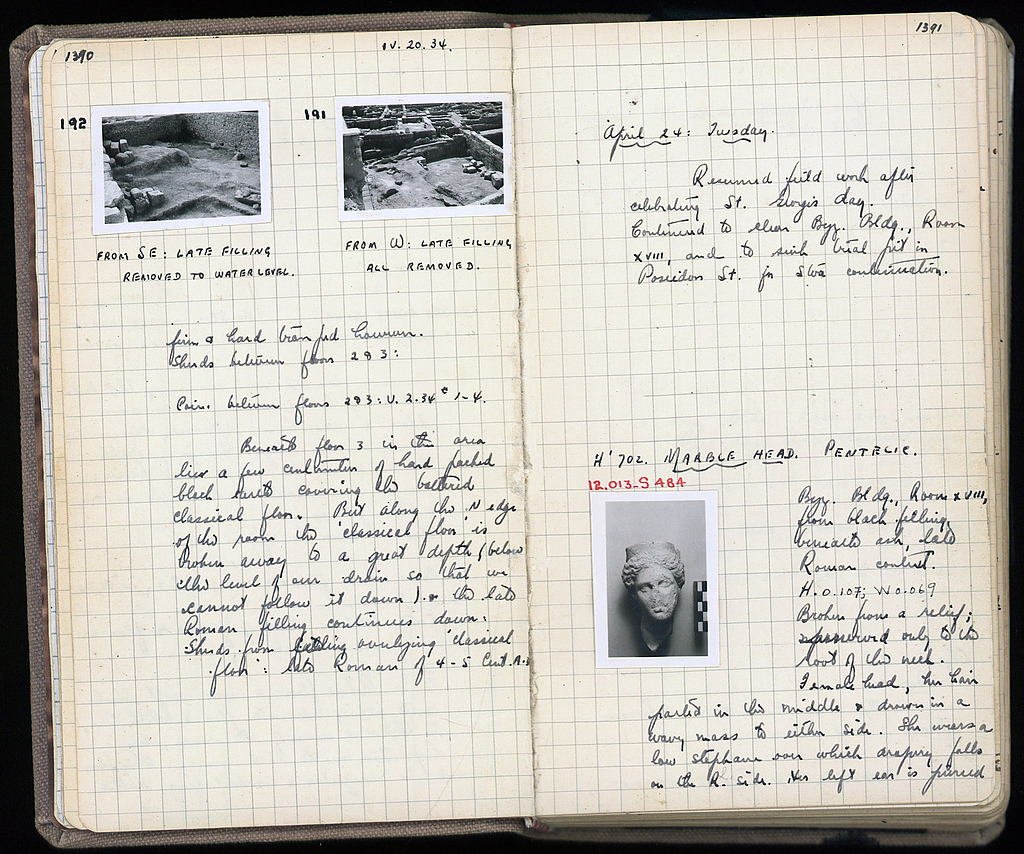 1390
IV. 20. 34.
192
191
FROM SE: LATE FILLING
REMOVED TO WATER LEVEL.
FROM W: LATE FILLING
ALL REMOVED.
firm & hard
Sherds between floors 2 & 3:
Coins between floors 2 & 3: V. 2.34 # 1-4.
Beneath floor 3 in this area
lies a few centimetres of hard packed
black earth covering the battered
classical floor. But along the N edge
of the room the 'classical floor' is
broken away to a great depth (below
the level of our drain so that we
cannot follow it down) & the late
Roman filling continues down:
Sherds from filling overlying 'classical
floor': late Roman of 4-5 Cent. A.D.
1391
April 24: Tuesday.
Resumed field work after
celebrating St. George's day.
Continued to clear Byz. Bldg., Room
XVIII, and to sink trial pit in
Poseidon St. for Stoa continuation.
H' 702. MARBLE HEAD. PENTELIC.
12.013-S 484
Byz. Bldg., Room XVIII,
from black filling
beneath ash, late
Roman context.
H. 0.107; W 0.069
Broken from a relief;
preserved only to the
root of the neck.
Female head, her hair
parted in the middle & drawn in a
wavy mass to either side. She wears a
low stephane over which drapery falls
on the R. side. Her left ear is pierced